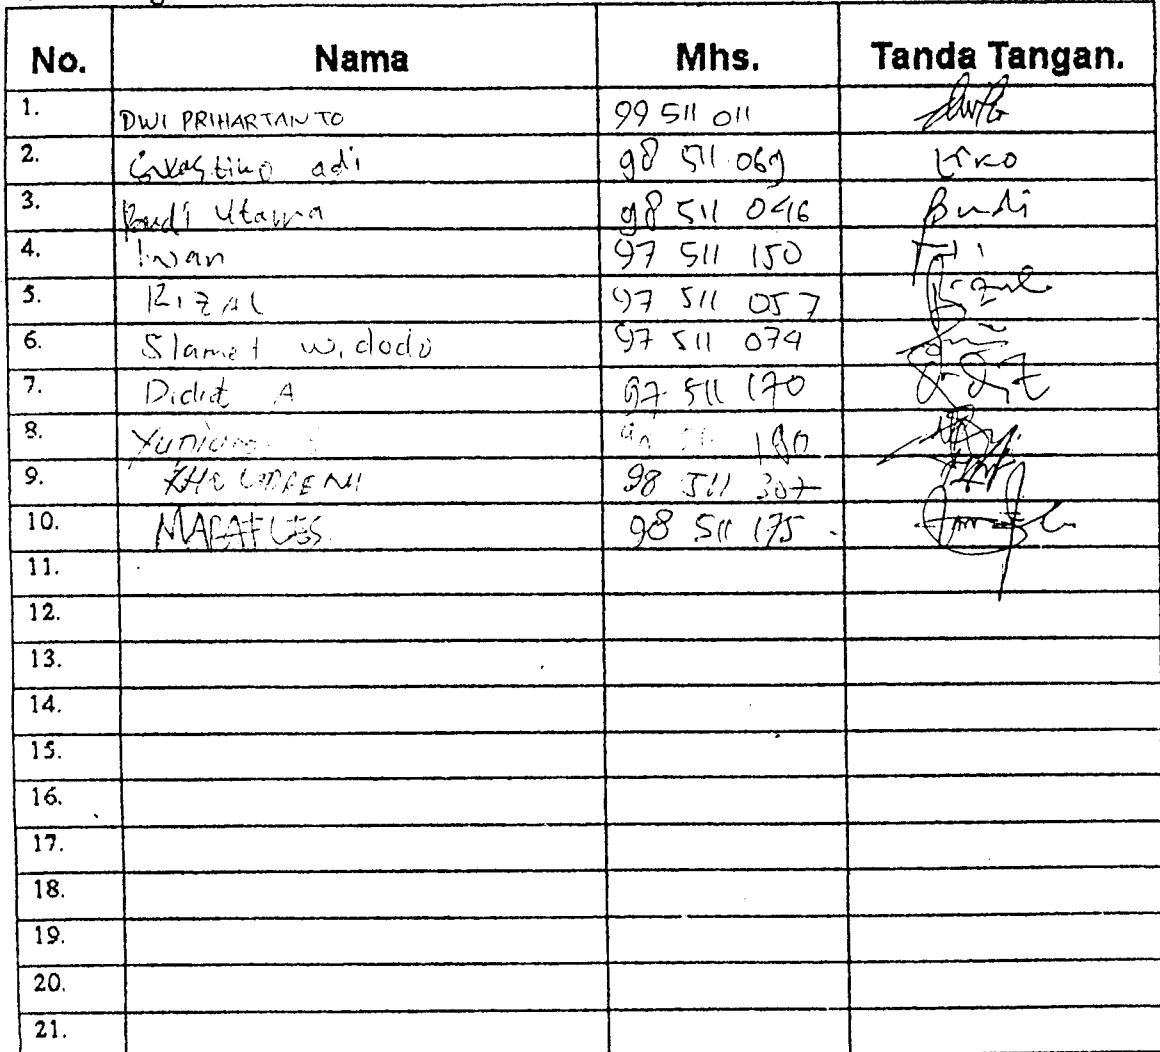 No. Nama Mhs. Tanda Tangan.
1. DWI PRIHARTANTO 99 511 011
2. adi 98 511 069 Kiko
3. Budi Utama 98 511 046 Budi
4. Iwan 97 511 150
5. RIZAL 97 511 057
6. Slamet widodo 97 511 074
7. Didit A 97 511 170
8. 180
9. 98 511 307
10. 98 511 175
11.
12.
13.
14.
15.
16.
17.
18.
19.
20.
21.